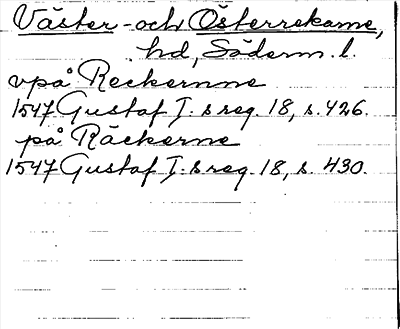 Väster- och Österrekarne,
hd, Söderm. l.
vpå Reckernne
1547 Gustaf I:s reg. 18, s. 426.
på Räckerne
1547 Gustaf I:s reg. 18, s. 430.